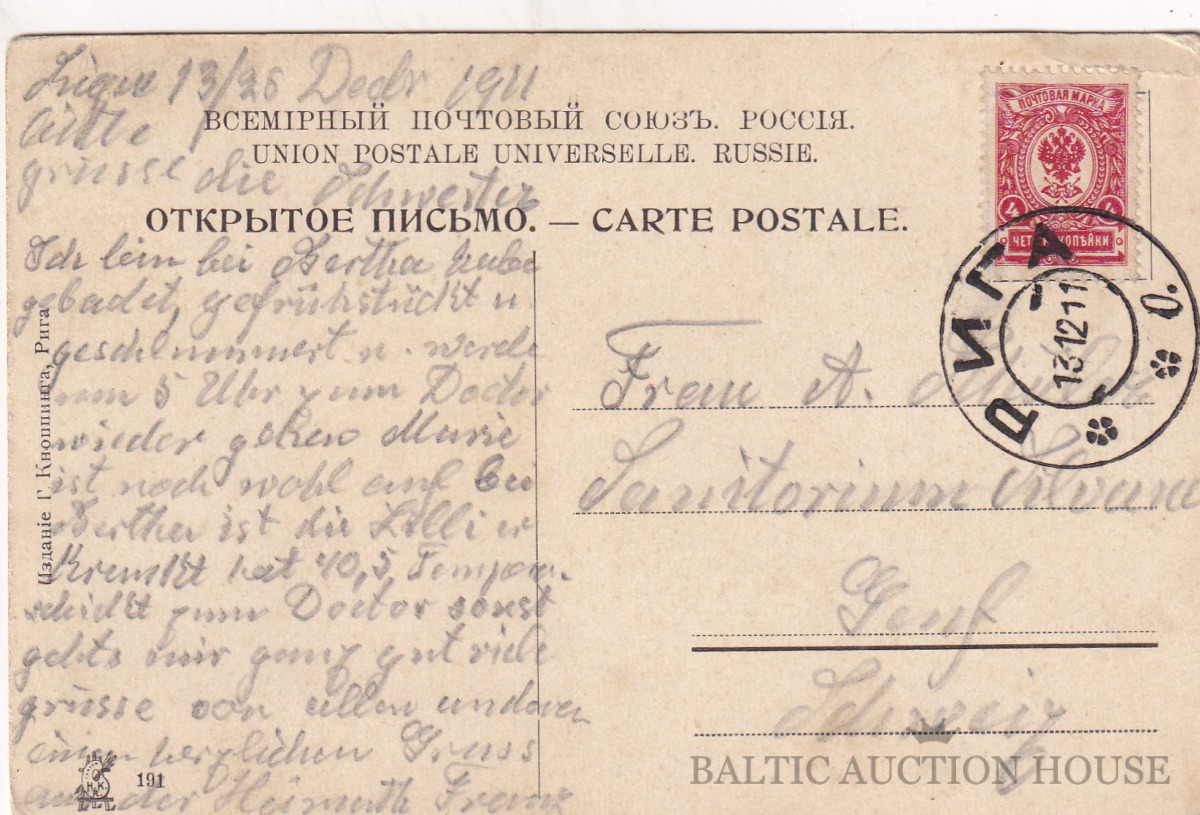 Riga 13/26 Decbr 1911
Bitte
grüsse die Schwester
ВСЕМІРНЫЙ ПОЧТОВЫЙ СОЮЗЪ. РОССІЯ.
UNION POSTALE UNIVERSELLE. RUSSIE.
ОТКРЫТОЕ ПИСЬМО. — CARTE POSTALE.
Ich bin bei Bertha habe
gebadet, gefrühstückt u.
geschlummert u. werde
um 5 Uhr zum Doctor
wieder gehen Murie
ist noch wohl auf bei
Bertha ist die Lilli er
krankt hat 40,5 Tempera.
schickt zum Doctor sonst
gehts mir ganz gut viele
grüsse von allen anderen
einen herzlichen Gruss
aus der Heimath Franz
Изданіе Г. Кноппинга, Рига.
Н.К.Р.
191
ПОЧТОВАЯ МАРКА
4 4
ЧЕТЫРЕ КОПѢЙКИ
РИГА
13 12 11
Frau A.
Sanitorium
Genf
Schweiz
BALTIC AUCTION HOUSE